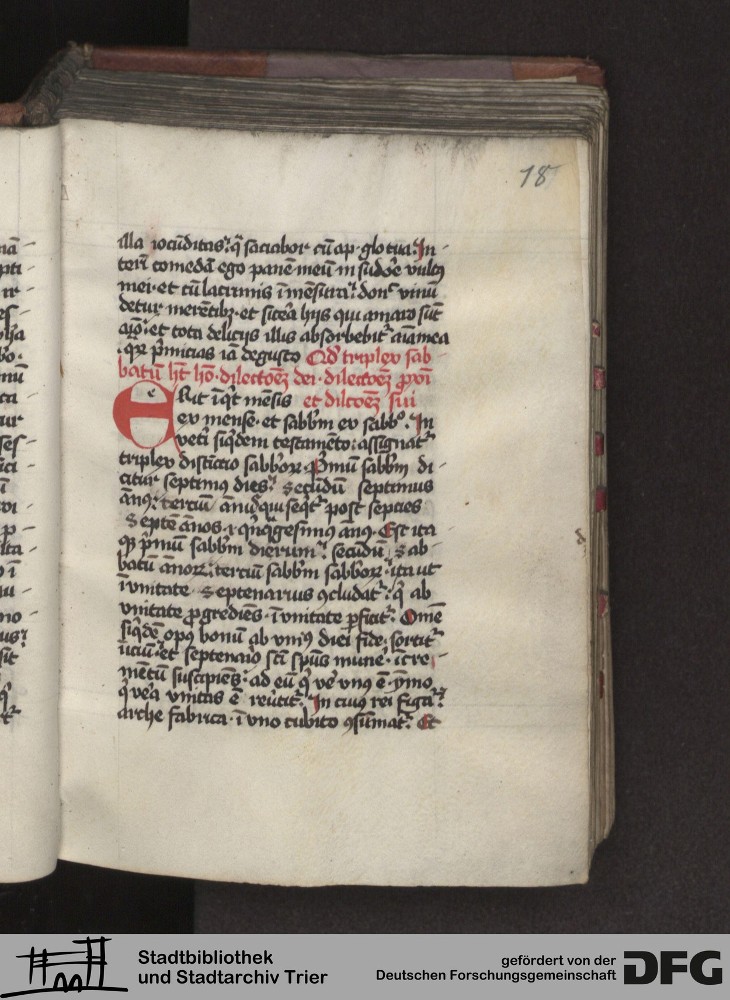 18
illa iocūditas: q̄ saciabor cū ap. glo tua. In
terī comedā ego panē meū in sudoe vultꝯ
mei. et cū lacrimis ī mēsura: donᶜ vinū
detur merētibꝫ. et sicea hijs qui amaro sūt
aīo: et tota deliciis illis absorbebitᷣ aīa mea
. qꝛ p̄micias iā degusto Qd̛ triplex sab
batū hꝫ hō. dilectōeꝫ dei. dilectōeꝫ ꝓxi
Erit īqt mēsis et dilcōeꝫ sui
ex mense. et sabb̄m ex sabbᵒ. In
veti siq̇dem testamēto: assignatᷣ
triplex distīctio sabboꝝ. P̄mū sabb̄m di-
citur septimus dies: secūdū septimus
ānꝯ: terciū an̄ꝯ qui seqtᷣ post sepcies
septē ānos. i. qn̄q̇gesimꝯ ānꝯ. Est ita
qꝫ p̄mū sabb̄m dierum: secūdū sab
batū ānoꝝ: terciū sabb̄m sabboꝝ. ita ut
ī vnitate septenarius ꝯcludatᷣ: q̇ ab
vnitate ꝓgrediēs. ī vnitate ꝑficitᷣ. Omē
siq̇dē opꝯ bonū ab vniꝯ diei fide. sortitᷣ
īiciū: et septenaīo sc̄i spūs munē. īcre-
mētū suscipiēs: ad eū q̇ ve vnꝯ ē. ymo
q̇ vea vnitas ē reūtitᷣ. In cuiꝯ rei figᵃ:
arche fabrica. ī vno cubito ꝯsūmatᷣ. Et
Stadtbibliothek
und Stadtarchiv Trier
gefördert von der
Deutschen Forschungsgemeinschaft
DFG